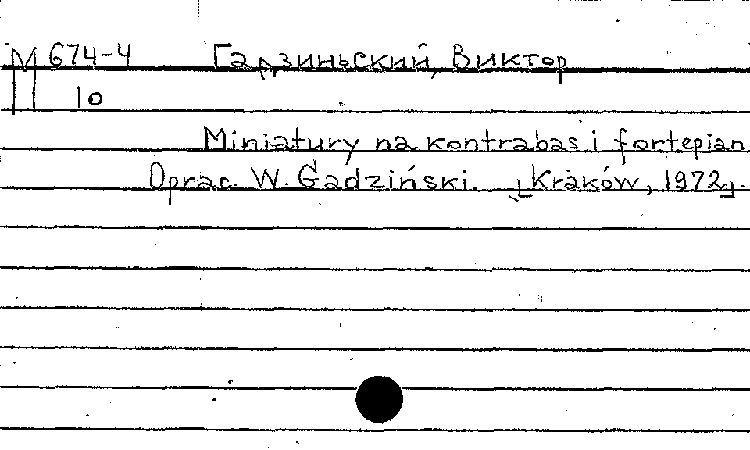 М 674-4 Гадзиньский, Виктор
10
Miniatury na kontrabas i fortepian
Oprac. W. Gadziński. [Kraków, 1972].